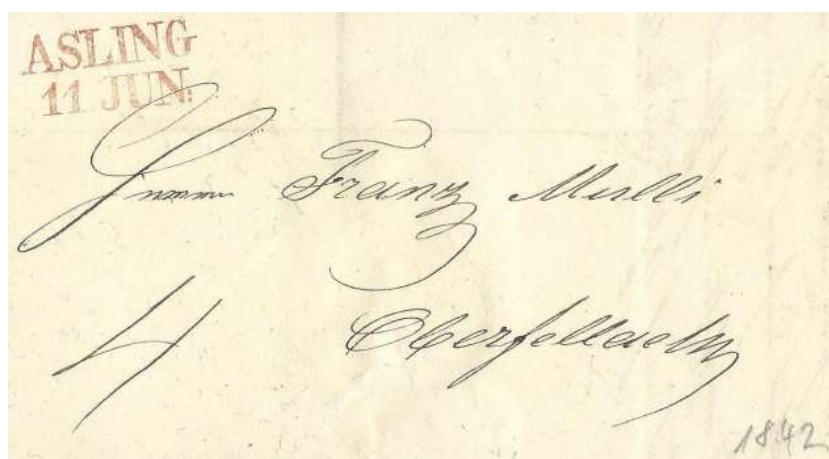 ASLING
11 JUN:
Herrn Franz Mulli
4 Oberfellach
1842